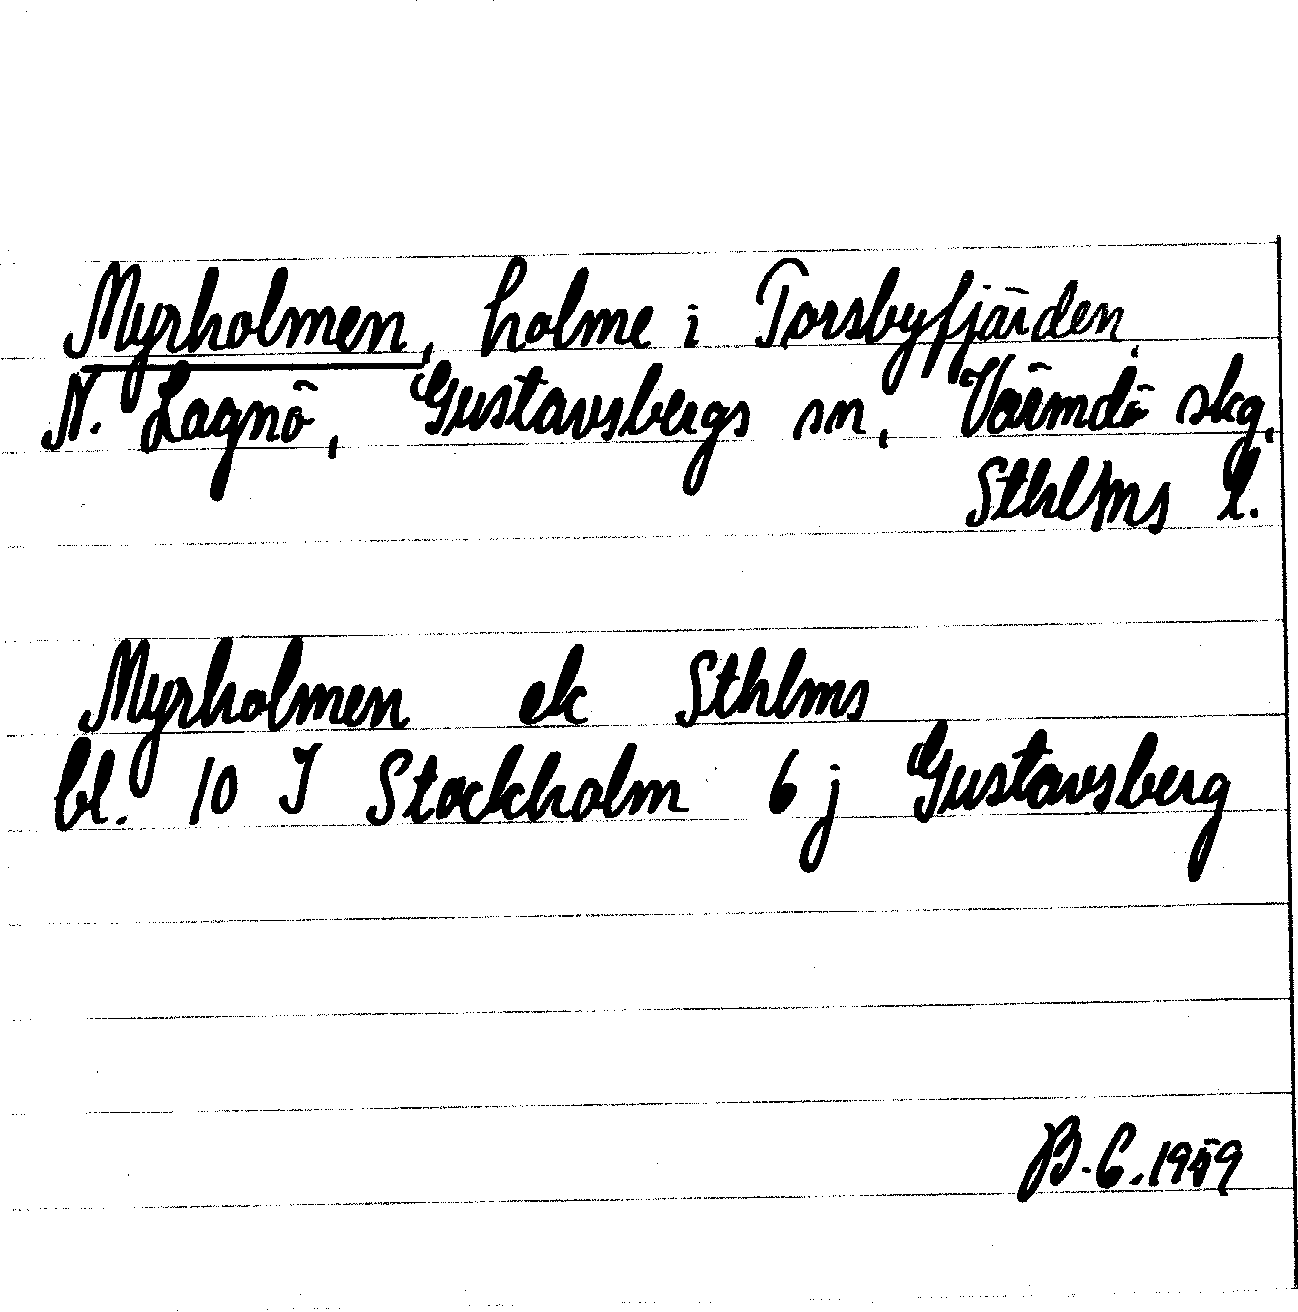 Myrholmen, holme i Torsbyfjärden,
N. Lagnö, Gustavsbergs sn, Värmdö skg,
Sthlms l.
Myrholmen ek Sthlms
bl. 10 I Stockholm 6 j Gustavsberg
B. G. 1959